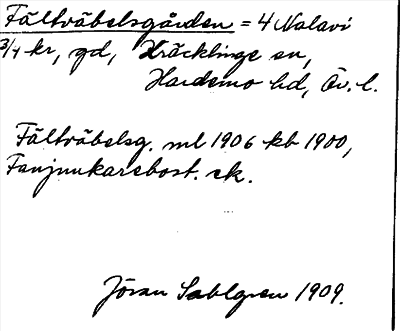 Fältväbelsgården = 4 Nalavi
3/4 kr, gd, Kräcklinge sn,
Hardemo hd, Öv. l.
Fältväbelsg. ml 1906 kb 1900,
Fanjunkarebost. ek.
Jöran Sahlgren 1909.